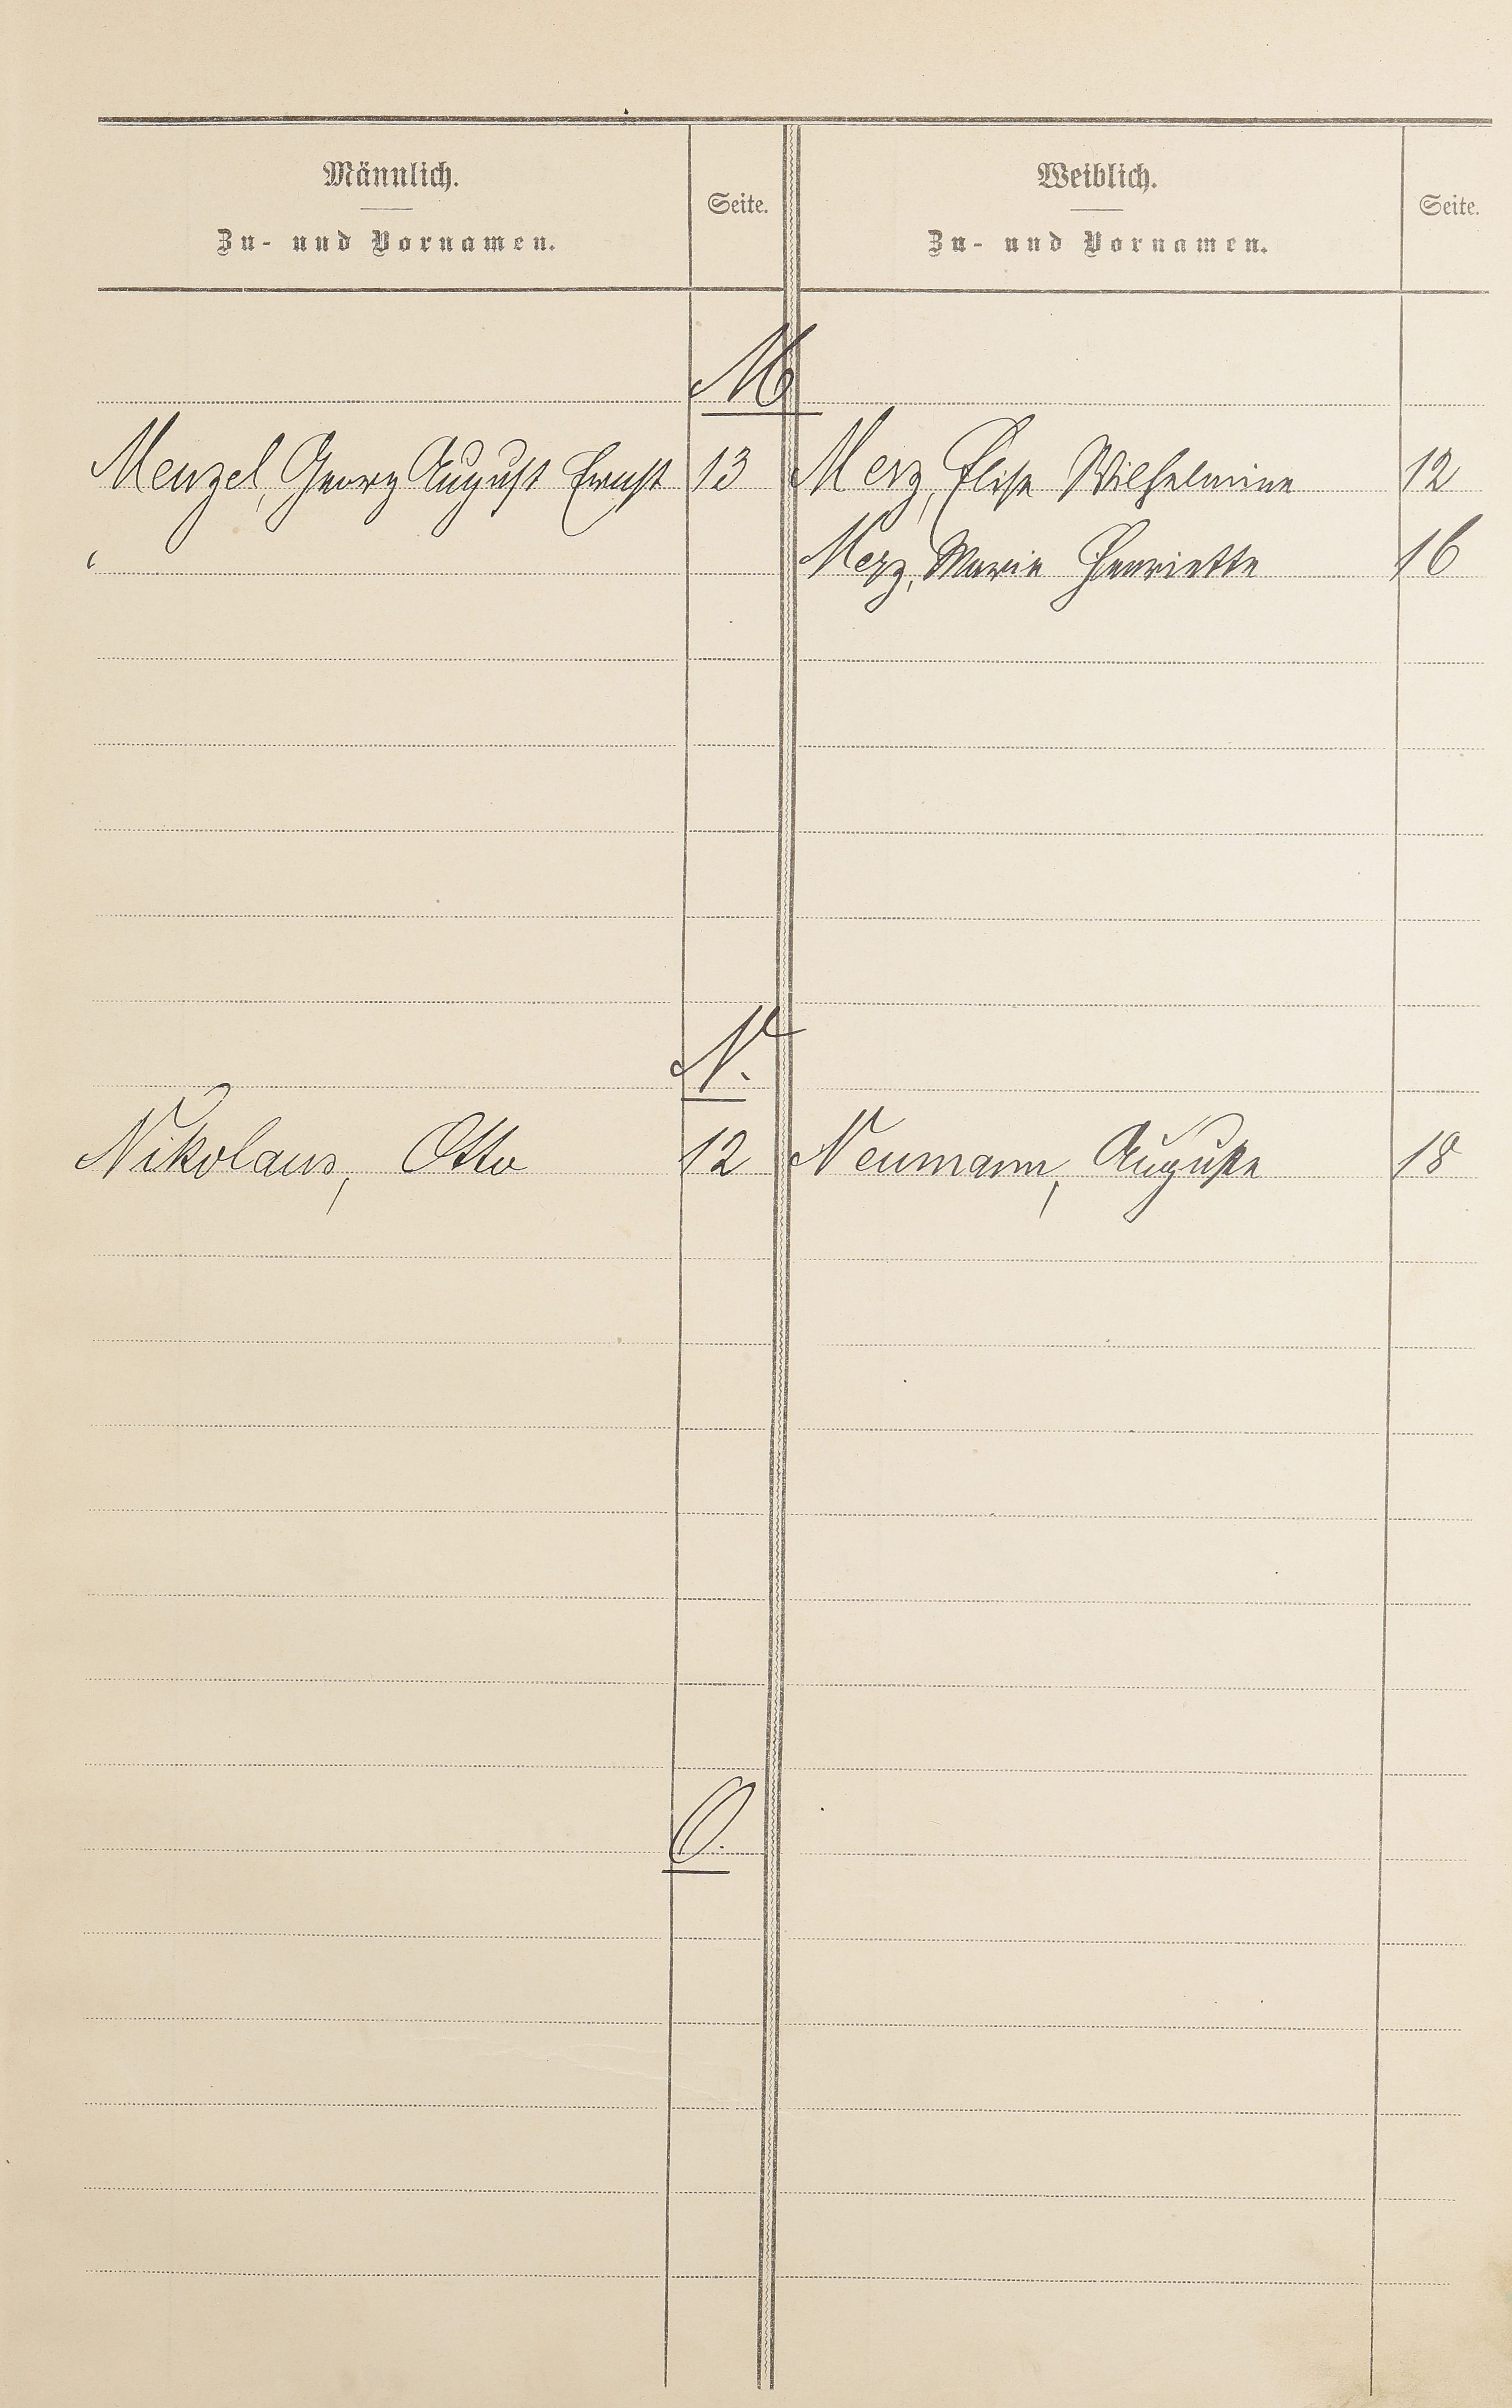 Männlich.
Zu- und Vornamen.
Seite.
Weiblich.
Zu- und Vornamen.
Seite.
M
Menzel, Georg August Ernst 13 Merz, Elise Wilhelmine 12
Merz, Marie Henriette 16
N.
Nikolaus, Otto 12 Neumann, Auguste 18
O.